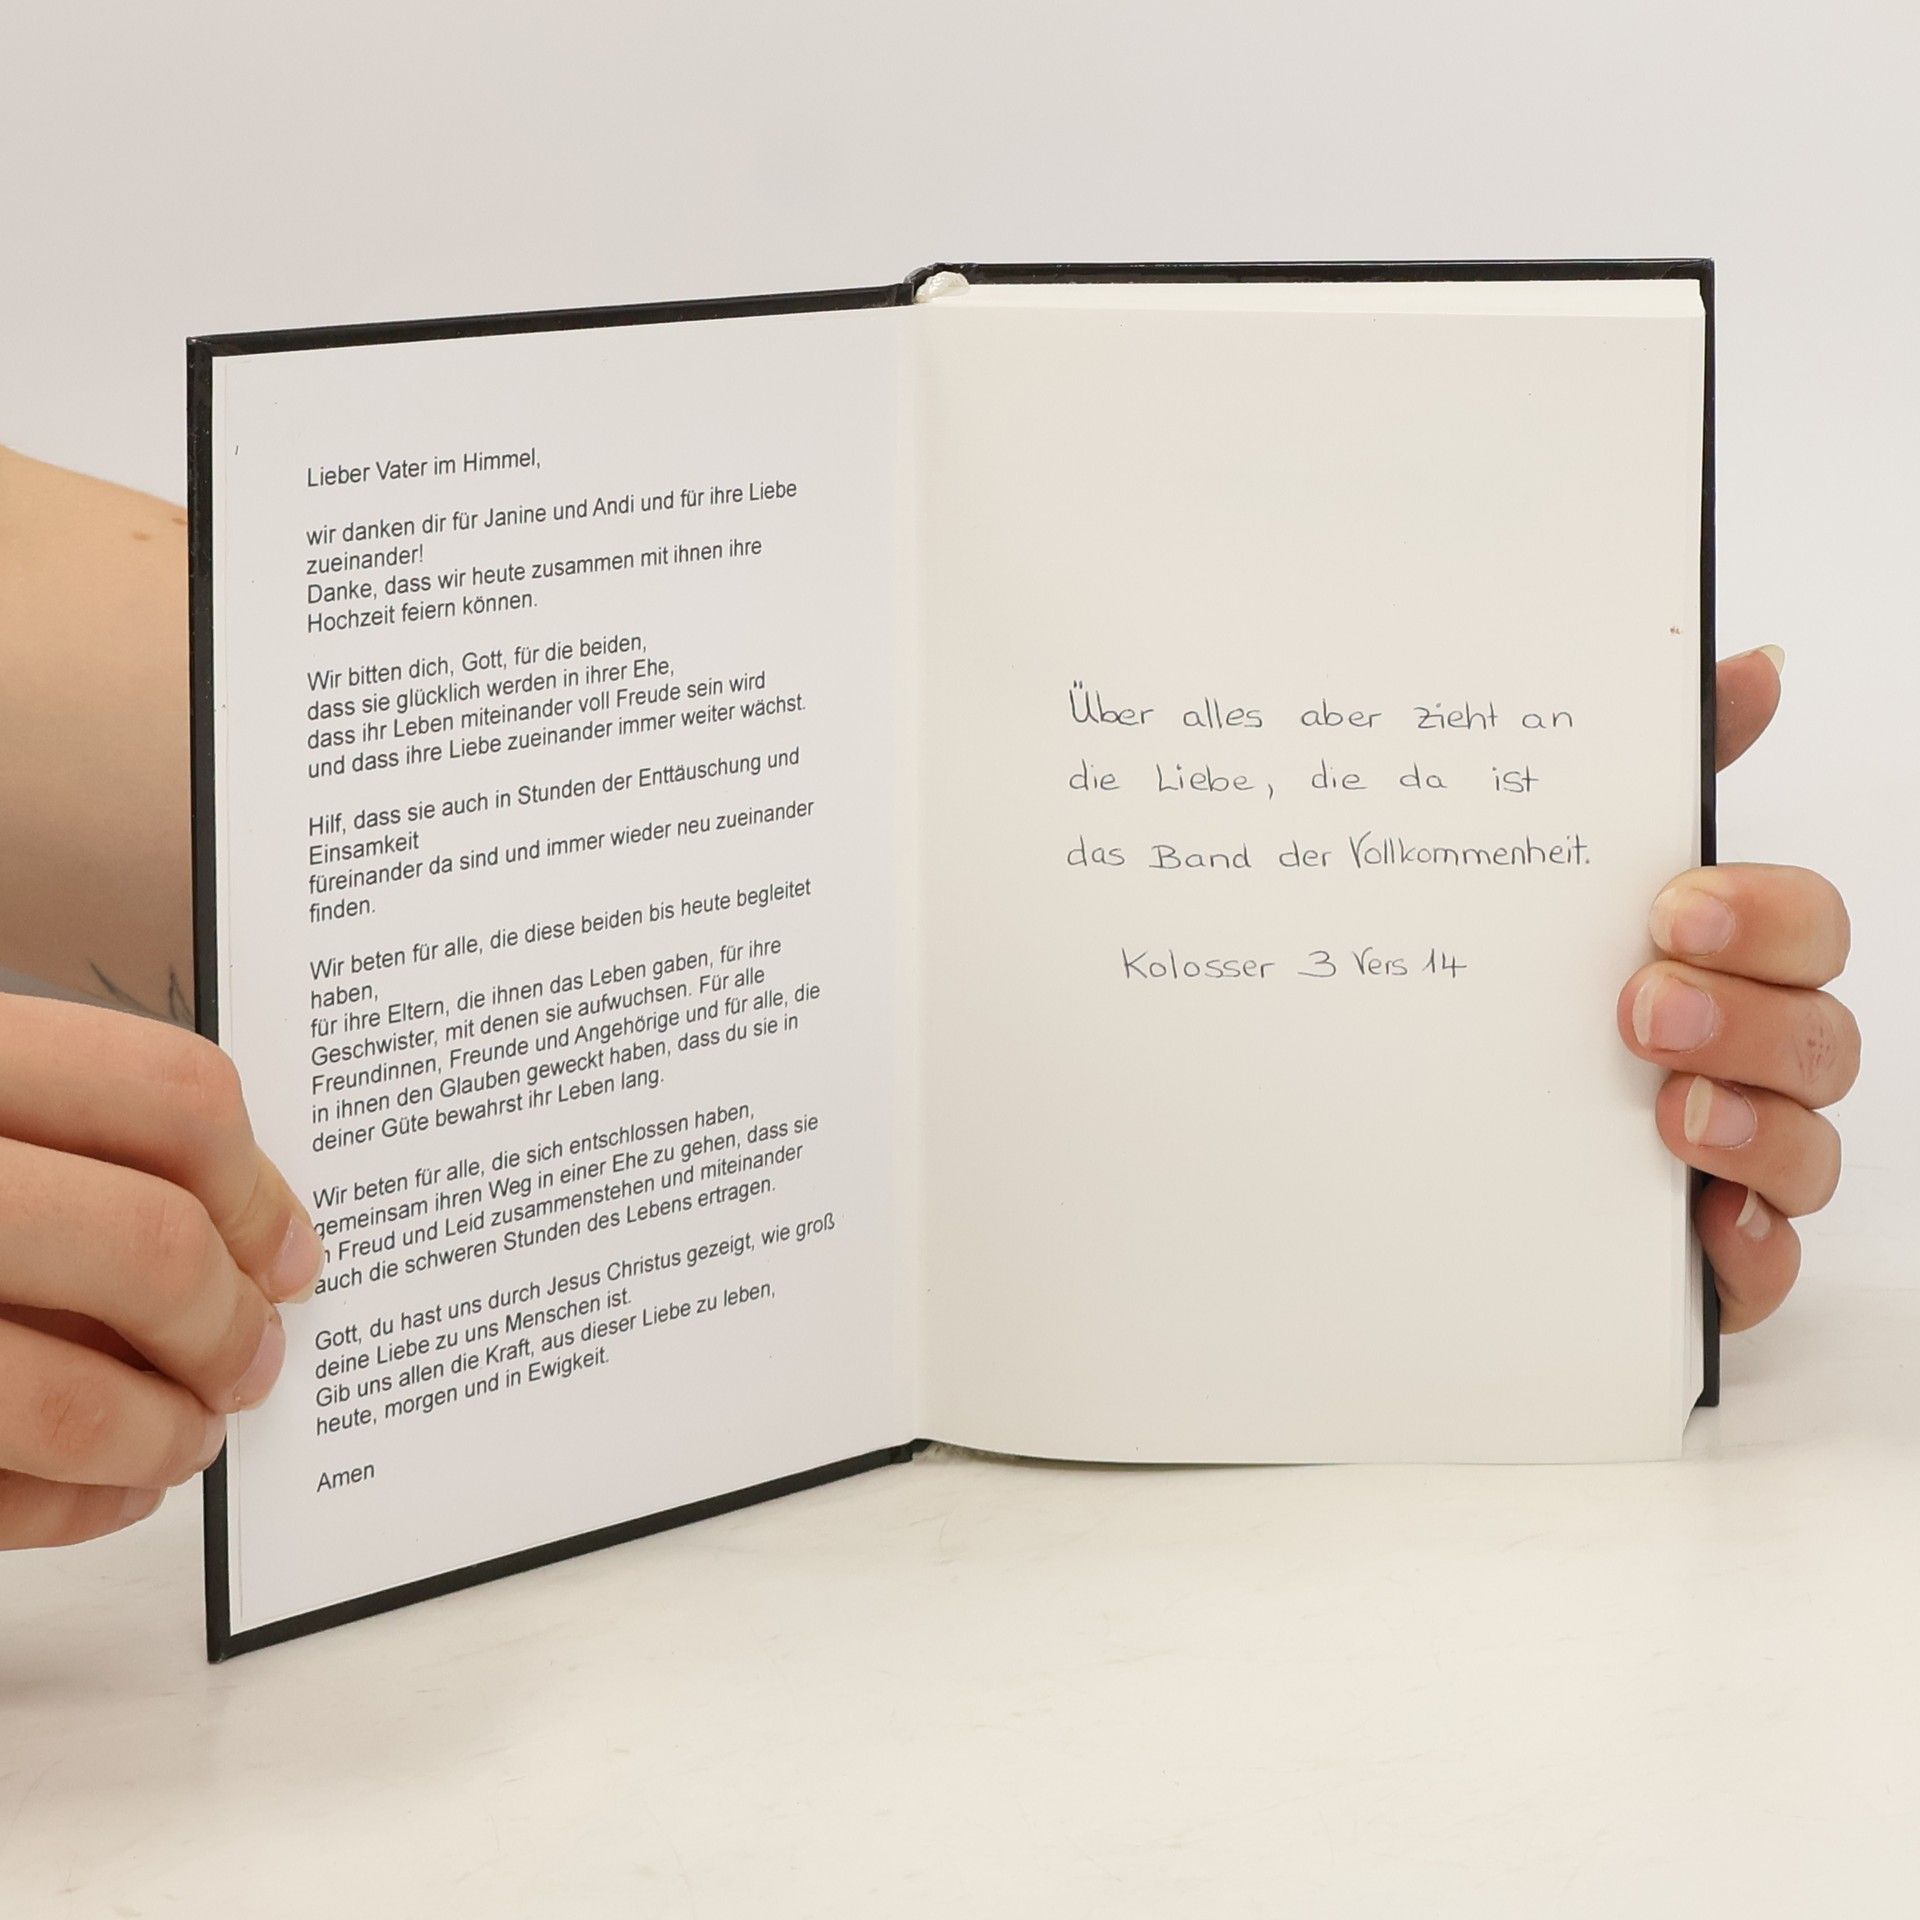 Lieber Vater im Himmel,
wir danken dir für Janine und Andi und für ihre Liebe
zueinander!
Danke, dass wir heute zusammen mit ihnen ihre
Hochzeit feiern können.
Wir bitten dich, Gott, für die beiden,
dass sie glücklich werden in ihrer Ehe,
dass ihr Leben miteinander voll Freude sein wird
und dass ihre Liebe zueinander immer weiter wächst.
Hilf, dass sie auch in Stunden der Enttäuschung und
Einsamkeit
füreinander da sind und immer wieder neu zueinander
finden.
Wir beten für alle, die diese beiden bis heute begleitet
haben,
für ihre Eltern, die ihnen das Leben gaben, für ihre
Geschwister, mit denen sie aufwuchsen. Für alle
Freundinnen, Freunde und Angehörige und für alle, die
in ihnen den Glauben geweckt haben, dass du sie in
deiner Güte bewahrst ihr Leben lang.
Wir beten für alle, die sich entschlossen haben,
gemeinsam ihren Weg in einer Ehe zu gehen, dass sie
Freud und Leid zusammenstehen und miteinander
auch die schweren Stunden des Lebens ertragen.
Gott, du hast uns durch Jesus Christus gezeigt, wie groß
deine Liebe zu uns Menschen ist.
Gib uns allen die Kraft, aus dieser Liebe zu leben,
heute, morgen und in Ewigkeit.
Amen
Über alles aber zieht an
die Liebe, die da ist
das Band der Vollkommenheit.
Kolosser 3 Vers 14